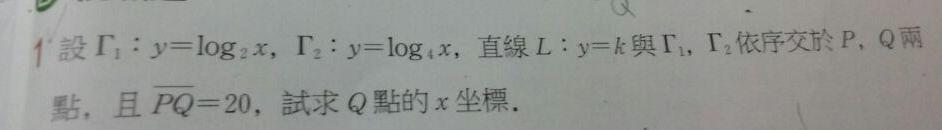 Q
1 設 Γ₁：y=log₂x，Γ₂：y=log₄x，直線 L：y=k 與 Γ₁，Γ₂ 依序交於 P，Q 兩
點，且 \overline{PQ}=20，試求 Q 點的 x 坐標．